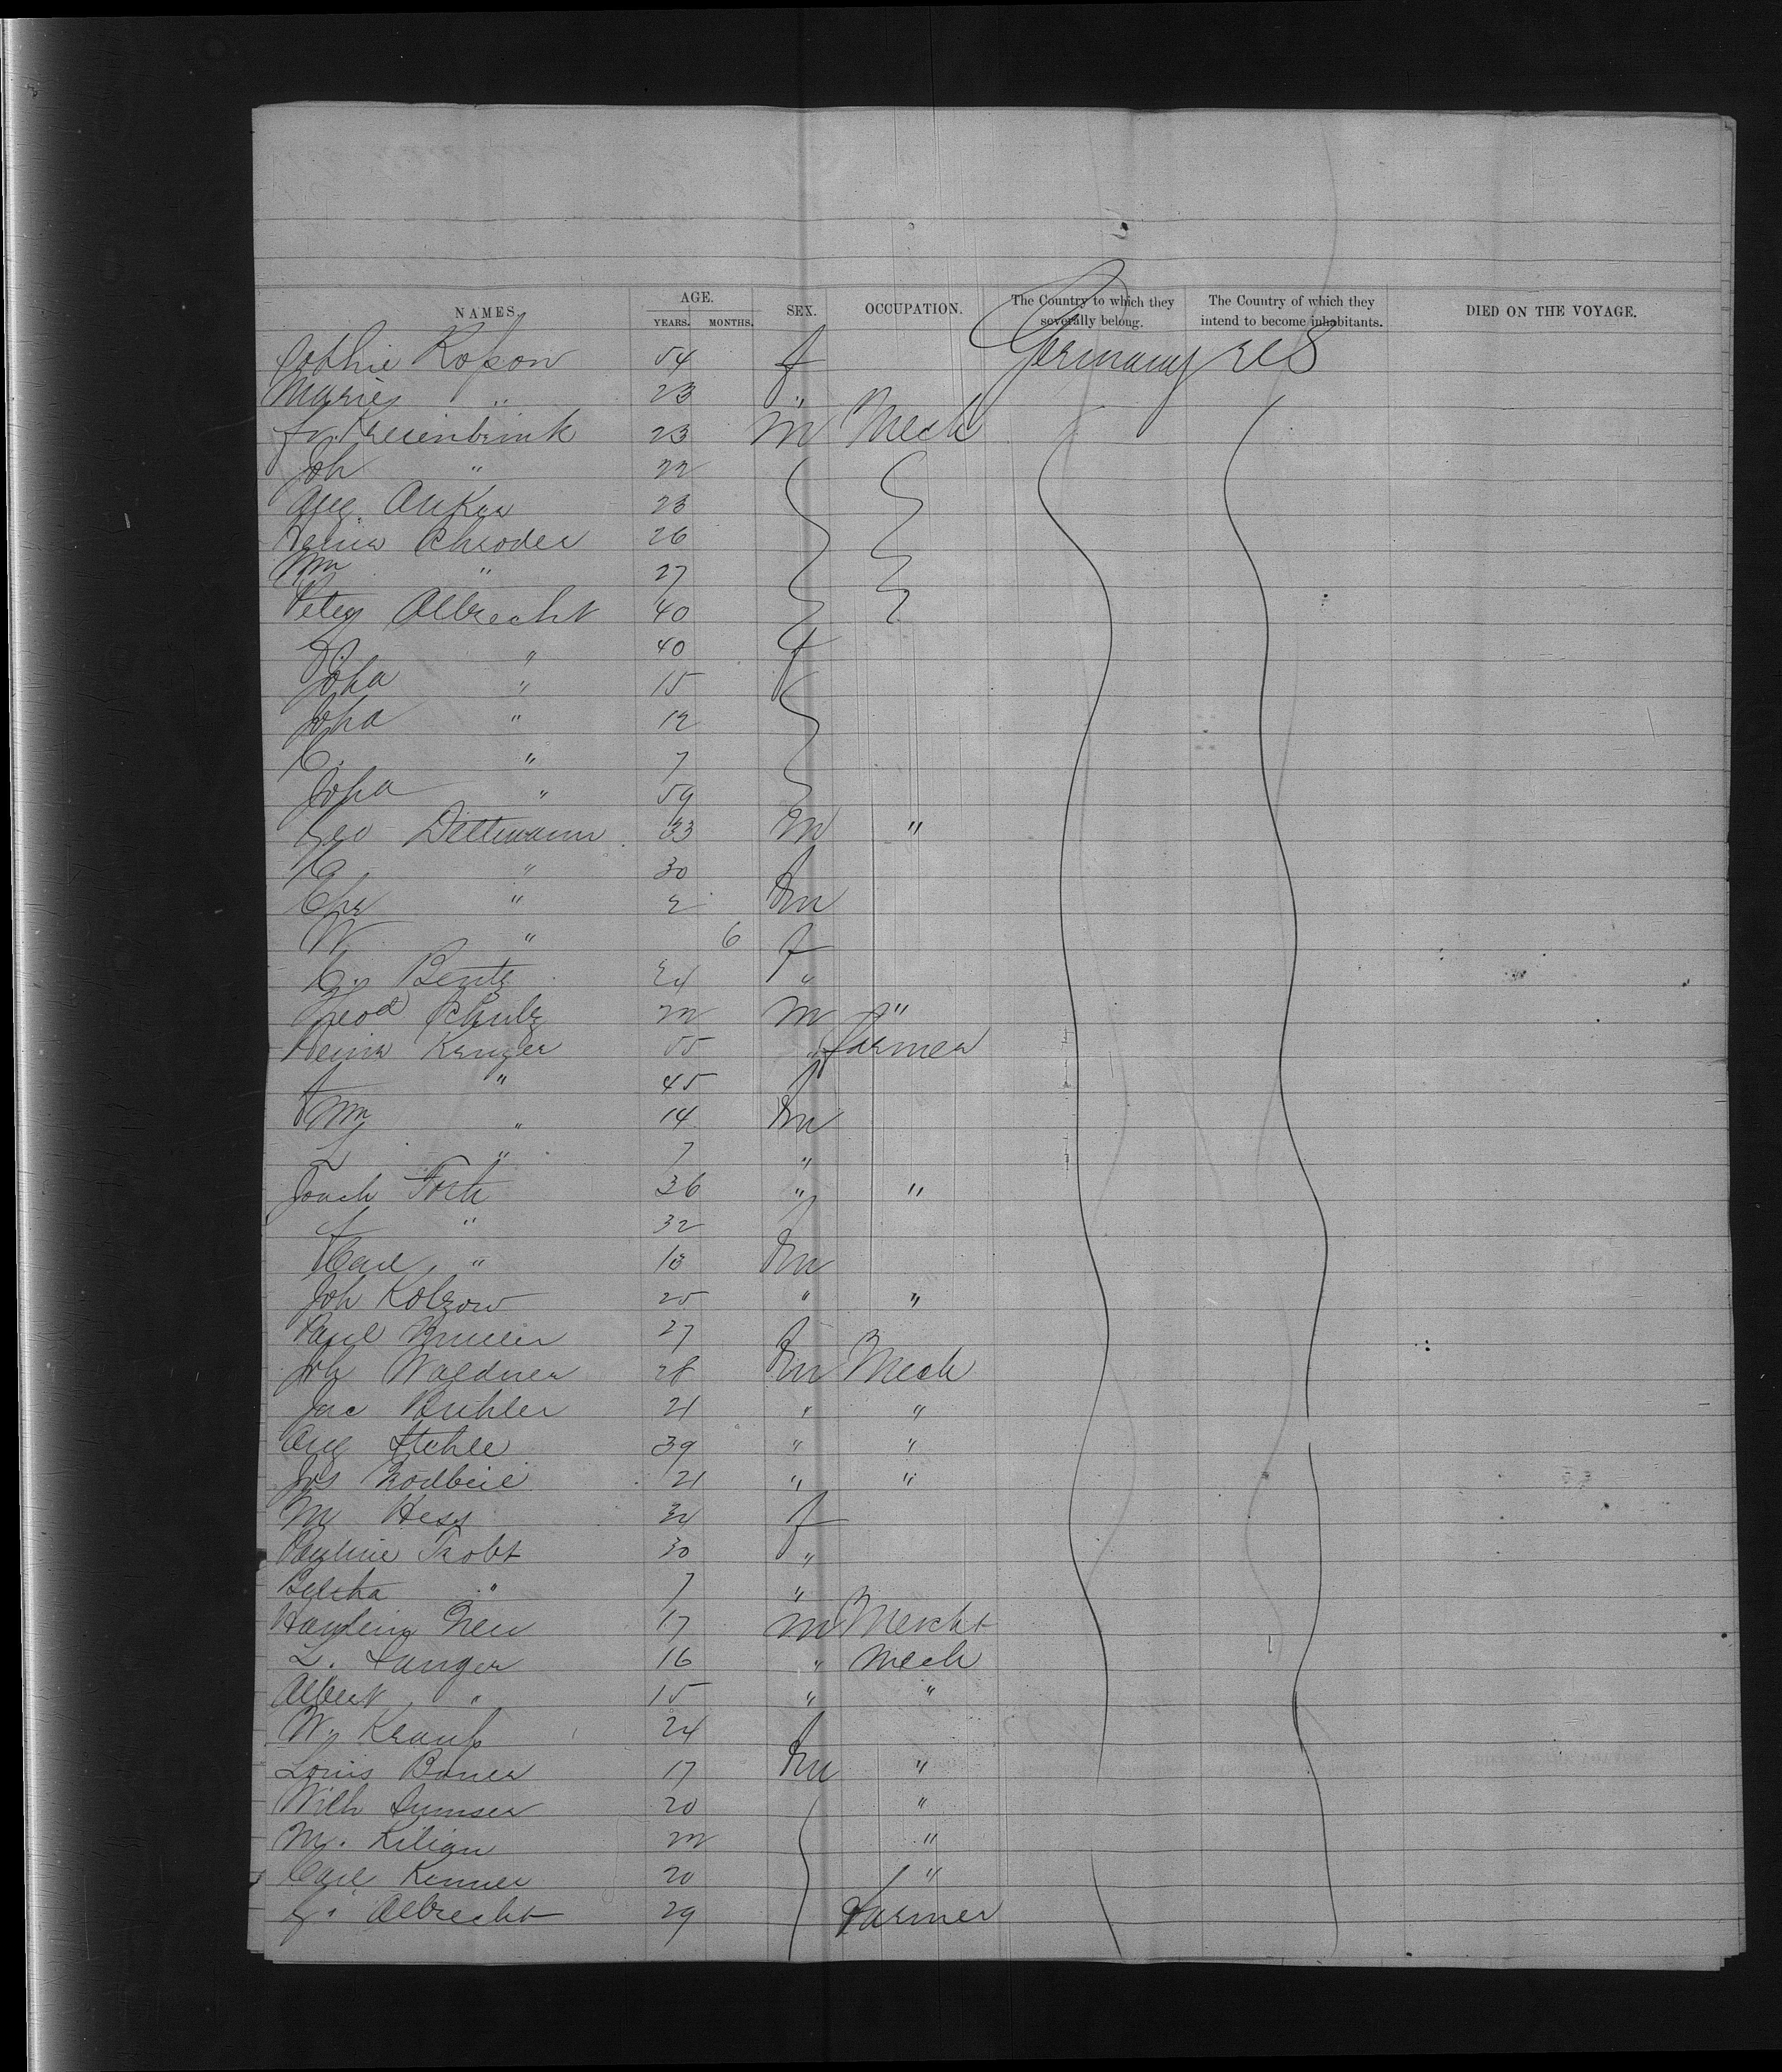 NAMES. AGE. YEARS. MONTHS. SEX. OCCUPATION. The Country to which they severally belong. The Country of which they intend to become inhabitants. DIED ON THE VOYAGE.
Sophie 54 f Germany U S
Marie " 23 "
Fr. Kreienbrink 23 m Mech
Joh " 22
Aug. Anker 23
Heinr Schroder 26
Wm " 27
Peter Albrecht 40
" 40 f
Joha " 15
Joha " 12
C. " 7
Joha " 59
Geo Dettmann 33 m "
C " 30 f
Chr " 2 m
W. " 6 f
C. Bentz 24 "
Heinr Kruger 55 " farmer
" 45 f
Wm " 14 m
L " 7 "
Joach 36 " "
" 32 f
Carl " 13 m
Joh Kolzow 25 " "
Paul 27
Joh Waldner 28 m Mech
Jac Buhler 21 " "
Aug Stehle 39 " "
Jos Brodbeil 21 " "
M Hess 34 f
Pauline Trobt 30 "
Bertha " 7 "
17 m Mercht
L. 16 " Mech
Albert " 15 " "
W. Krauss 24 f
Louis Bauer 17 m "
Wilh Sumser 20 "
M. Kilian 22 "
Carl Renner 20 "
Albrecht 29 Farmer